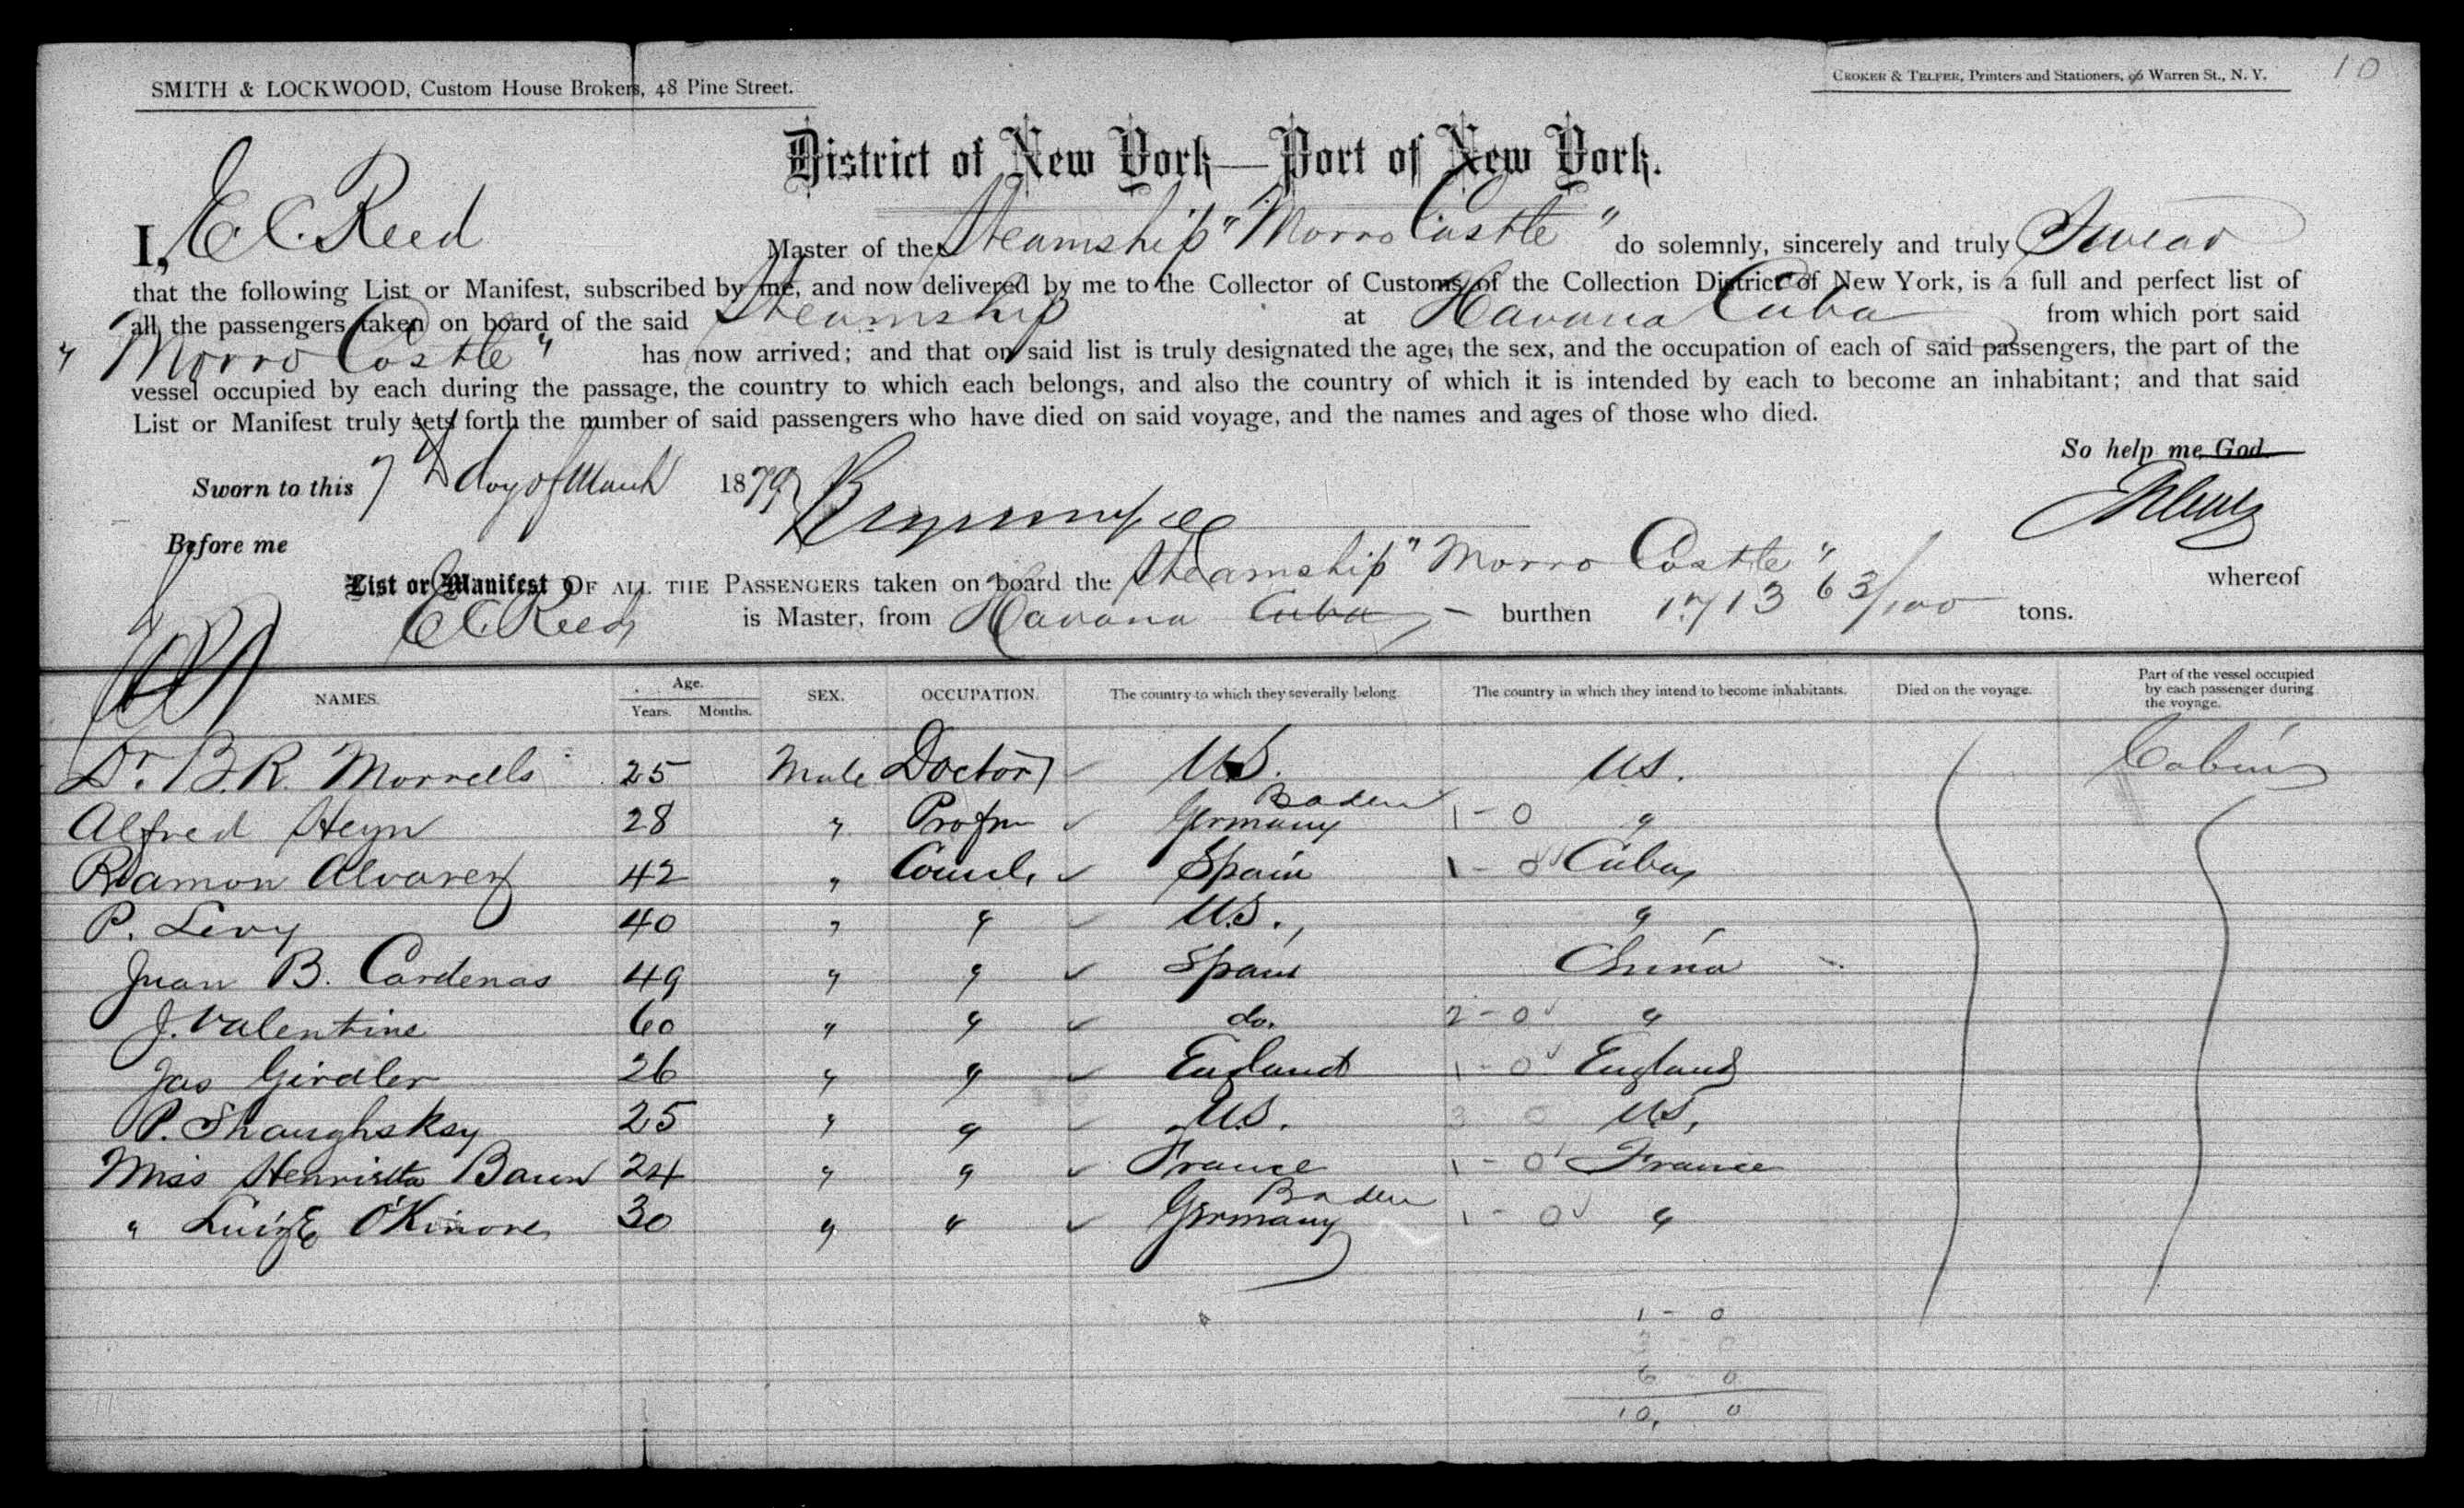 SMITH & LOCKWOOD, Custom House Brokers, 48 Pine Street.
CROKER & TELFER, Printers and Stationers, 96 Warren St., N. Y.
10
District of New York—Port of New York.
I, E. C. Reed Master of the Steamship "Morro Castle" do solemnly, sincerely and truly Swear
that the following List or Manifest, subscribed by me, and now delivered by me to the Collector of Customs of the Collection District of New York, is a full and perfect list of
all the passengers taken on board of the said Steamship at Havana Cuba from which port said
"Morro Castle" has now arrived; and that on said list is truly designated the age, the sex, and the occupation of each of said passengers, the part of the
vessel occupied by each during the passage, the country to which each belongs, and also the country of which it is intended by each to become an inhabitant; and that said
List or Manifest truly sets forth the number of said passengers who have died on said voyage, and the names and ages of those who died.
So help me God.
Sworn to this 7th day of March 1879
Before me
List or Manifest OF ALL THE PASSENGERS taken on board the Steamship "Morro Castle" whereof
E C Reed is Master, from Havana Cuba burthen 1713 63/100 tons.
NAMES. Age. Years. Months. SEX. OCCUPATION. The country to which they severally belong. The country in which they intend to become inhabitants. Died on the voyage. Part of the vessel occupied by each passenger during the voyage.
Dr. B. R. Morrells 25 Male Doctor U.S. U.S. Cabin
Alfred Heyn 28 " Germany Baden 1 - 0 "
Ramon Alvarez 42 " Spain 1 - 0 Cuba
P. Levy 40 " " U.S. "
Juan B. Cardenas 49 " " Spain China
J. Valentine 60 " " do. 2 - 0 "
Jas Girdler 26 " " England 1 - 0 England
P. Shaughsksy 25 " " U.S. 3 0 U.S.
Miss Henrietta Baun 24 " " France 1 - 0 France
" O'Kinore 30 " " Germany Baden 1 - 0 "
1 - 0
3 - 0
6 0
10, 0